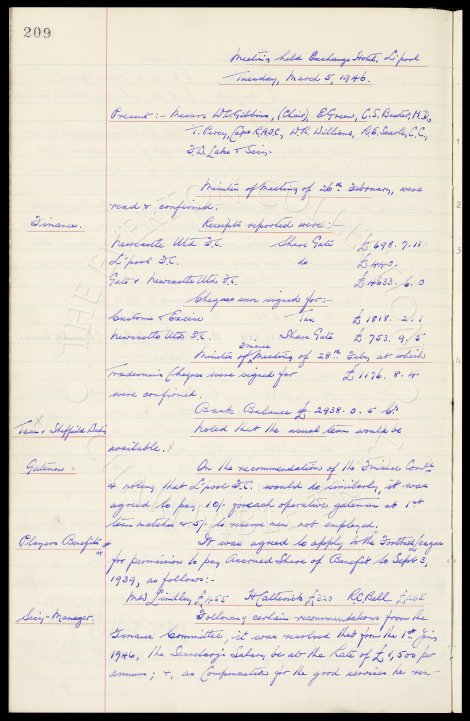 209
Meeting held Exchange Hotel, L'pool
Tuesday, March 5, 1946.
Present :- Messrs W.C. Gibbins, (Chair), E. Green, C.S. Baxter, M.D.,
T. Percy, Capt R.A.O.C., W.R. Williams, R.E. Searle, C.C.,
F.W. Lake & Secy.
Minutes of Meeting of 26th February, were
read & confirmed.
Finance. Receipts reported were :-
Newcastle Utd F.C. Share Gate £698. 7. 11
L'pool F.C. do £440.
Gate v Newcastle Utd F.C. £4633. 6. 0
Cheques were signed for :-
Customs & Excise Tax £1818. 2. 1
Newcastle Utd F.C. Share Gate £753. 9. 5
Finance
Minutes of Meeting of 28th Feby, at which
Tradesmen's Cheques were signed for £1176. 8. 4
were confirmed.
Bank Balance £2938. 0. 5 Cr.
Team v Sheffield Noted that the usual team would be
available.
Gatemen - On the recommendation of the Finance Comtee
& noting that L'pool F.C. would do similarly, it was
agreed to pay 10/- to each operative gateman at 1st
team matches & 5/- to reserve men not employed.
Players Benefits It was agreed to apply to the Football League
for permission to pay Accrued Share of Benefit to Sept 3,
1939, as follows :-
Lindley £455 H Catterick £320 R.C. Bell
Secy-Manager. Following certain recommendations from the
Finance Committee, it was resolved that from the 1st
1946, the Secretary's Salary be at the Rate of £1,500 per
annum; &, as Compensation for the good services he ren-